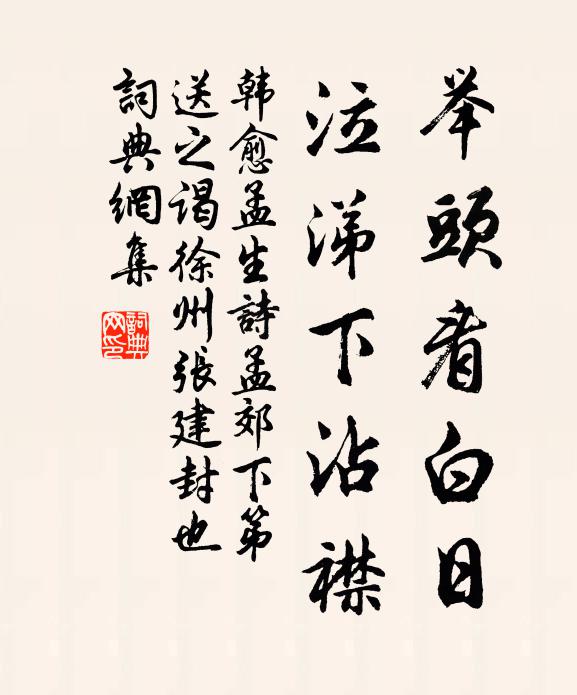 举頭看白日
泣涕下沾襟
韩愈孟生詩孟郊下第
送之谒徐州张建封也
詞典網集
詞典
网印